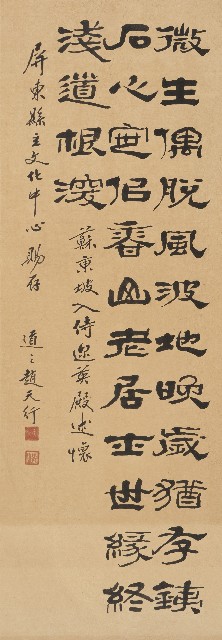 微生偶脫風波地晚歲猶存銕
石心定佀香山老居士世緣終
淺道根深
蘇東坡入侍迩英殿述懷
屏東縣立文化中心賜存
道之趙天行